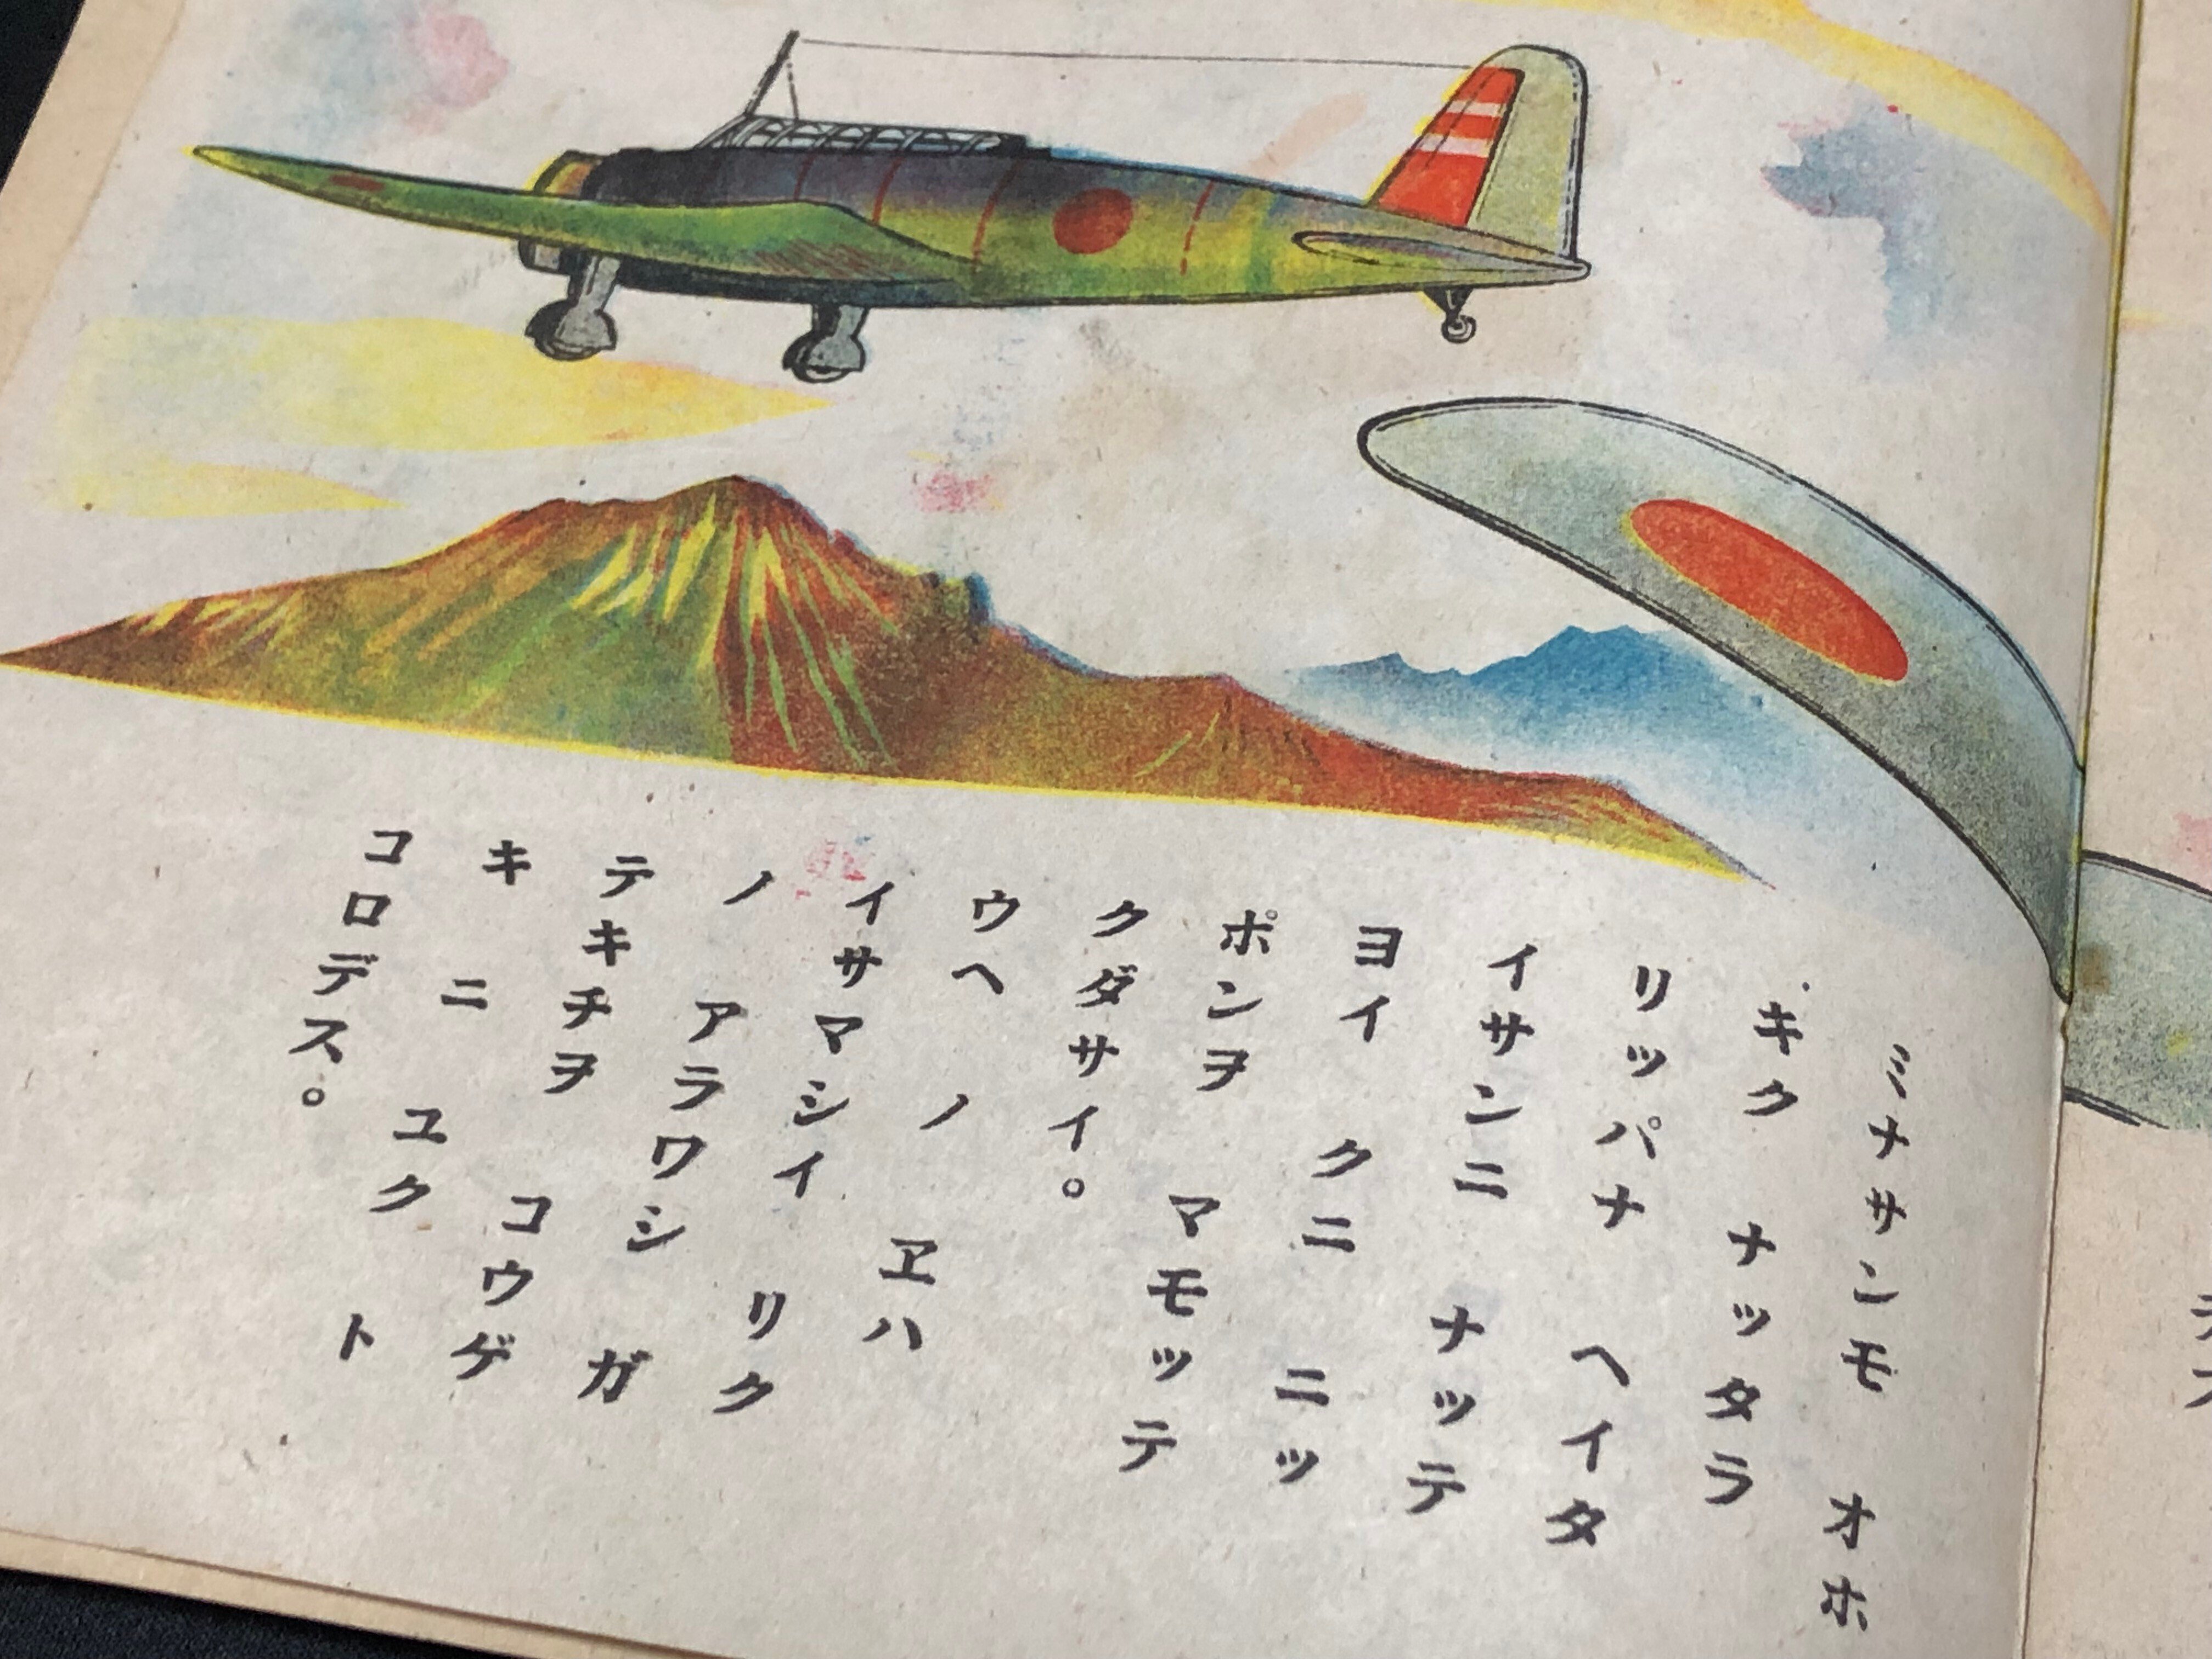 ミナサンモ オホ
キク ナッタラ
リッパナ ヘイタ
イサンニ ナッテ
ヨイ クニ ニッ
ポンヲ マモッテ
クダサイ。
ウヘ ノ ヱハ
イサマシイ リク
ノ アラワシ ガ
テキチヲ コウゲ
キ ニ ユク ト
コロデス。